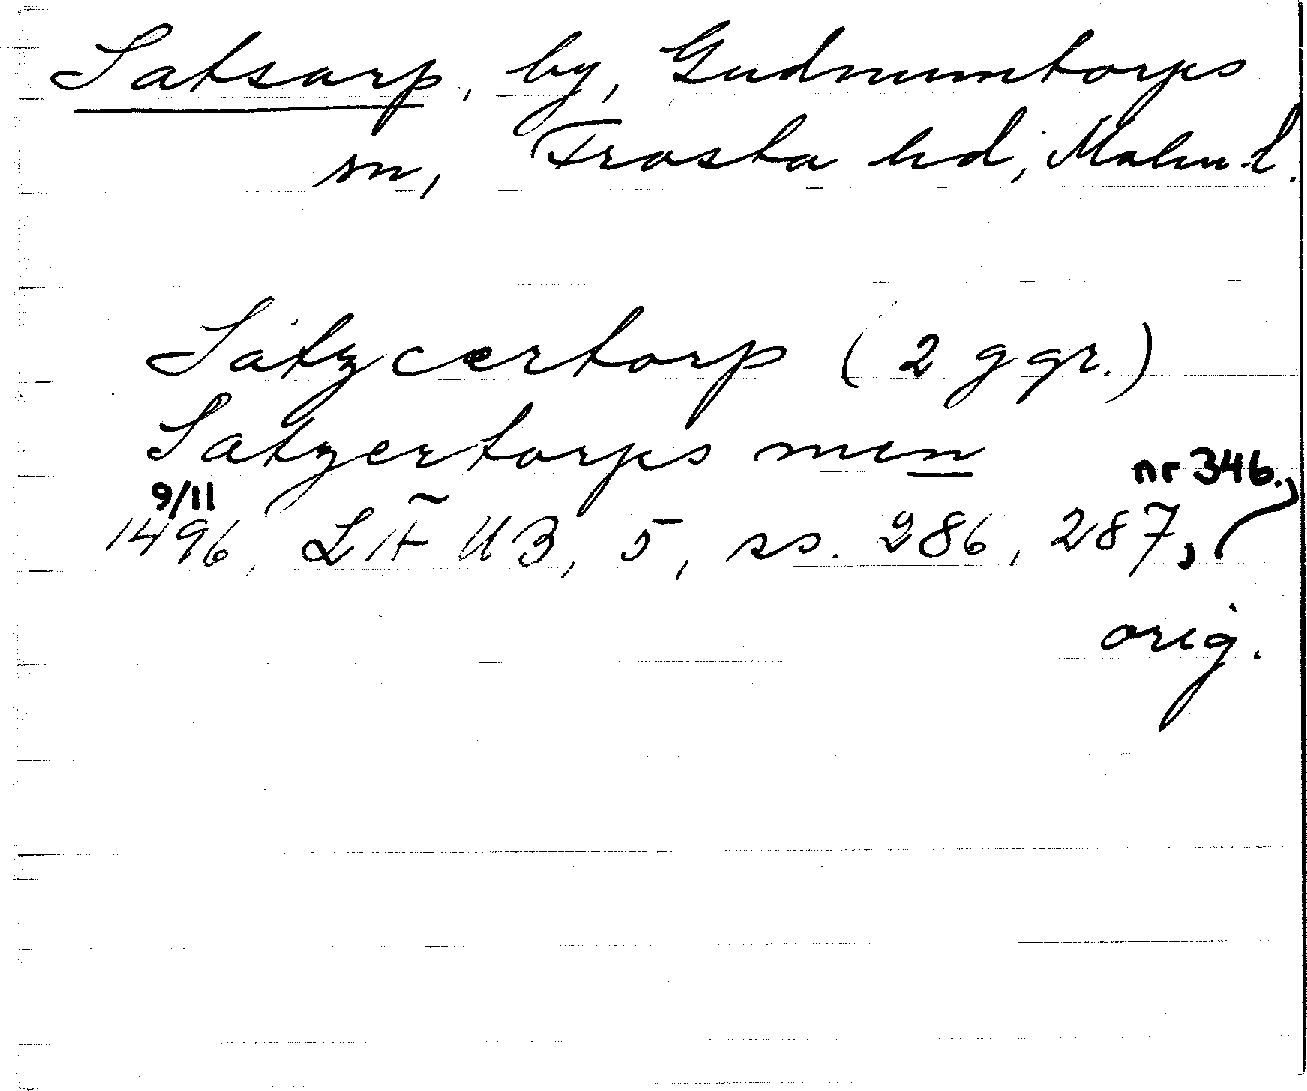 Satsarp, by, Gudmuntorps
sn, Frosta hd, Malm. l.
Satzcertorp (2 ggr.)
Satzertorps men
nr 346.,
9/11
1496, LÄUB, 5, ss. 286, 287,
orig.